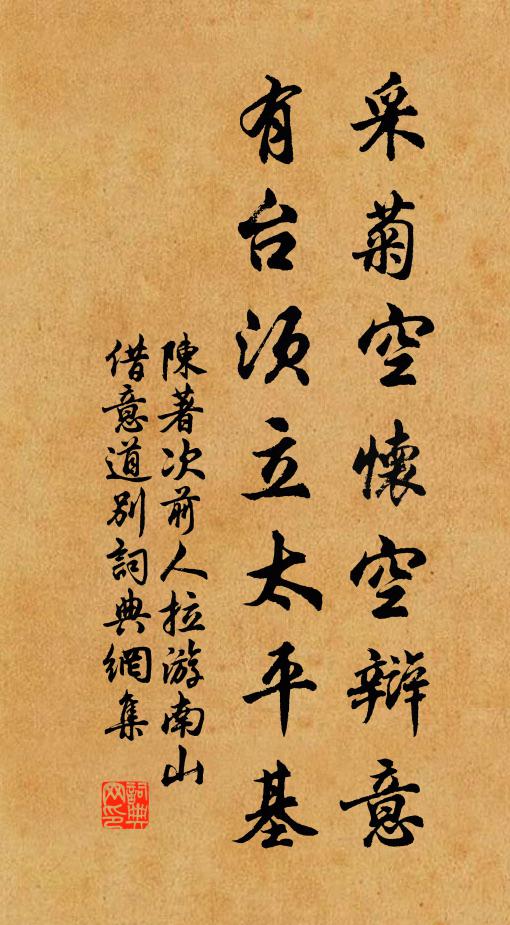 采菊空懷空辯意
有台須立太平基
陳著次前人拉游南山
借意道別詞典網集
詞典网印